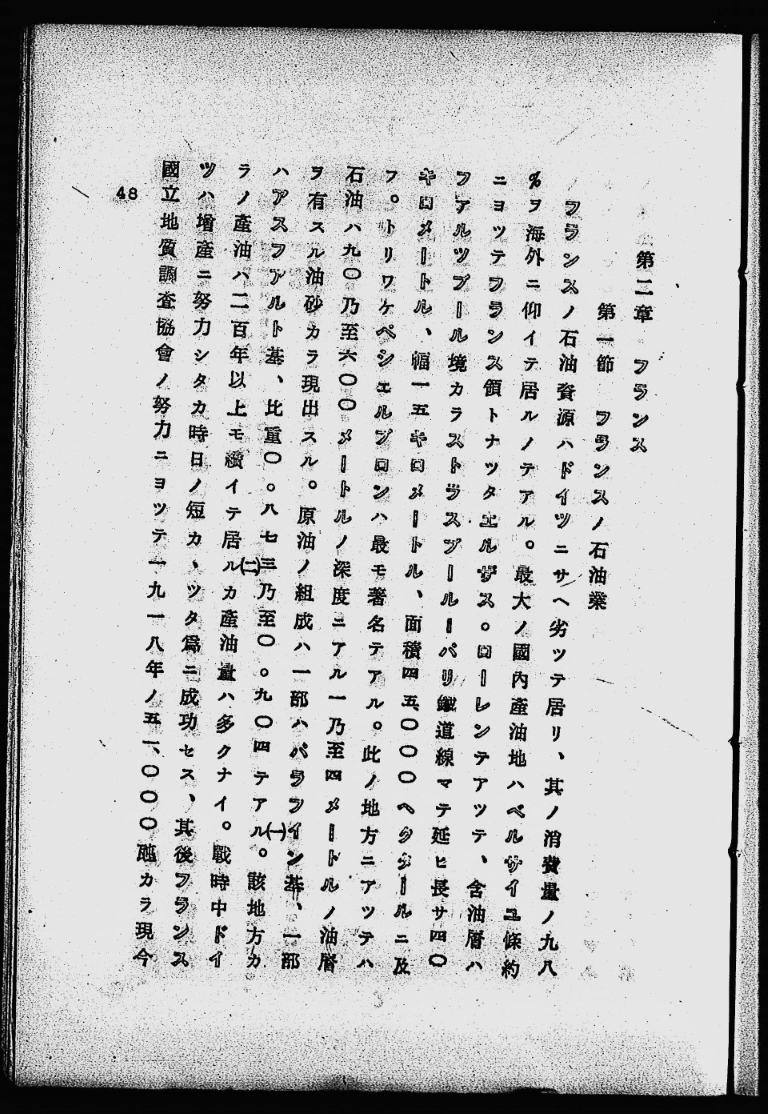 第二章 フランス
第一節 フランスノ石油業
フランスノ石油資源ハドイツニサヘ劣ツテ居リ、其ノ消費量ノ九八
%ヲ海外ニ仰イテ居ルノテアル。最大ノ國内產油地ハベルサイユ條約
ニヨツテフランス領トナツタエルザス。ローレンテアツテ、含油層ハ
フアルツブール境カラストラスブールーパリ鐵道線マテ延ヒ長サ四〇
キロメートル、幅一五キロメートル、面積四五〇〇〇ヘクタールニ及
フ。トリワケペシエルブロンハ最モ著名テアル。此ノ地方ニアツテハ
石油ハ九〇乃至六〇〇メートルノ深度ニアル一乃至四メートルノ油層
ヲ有スル油砂カラ現出スル。原油ノ組成ハ一部ハパラフイン基、一部
ハアスフアルト基、比重〇。八七三乃至〇。九〇四テアル(一)。該地方カ
ラノ產油ハ二百年以上モ續イテ居ル(二)カ產油量ハ多クナイ。戰時中ドイ
ツハ增產ニ努力シタカ時日ノ短カヽツタ爲ニ成功セス、其後フランス
國立地質調査協會ノ努力ニヨツテ一九一八年ノ五一、〇〇〇瓲カラ現今
48